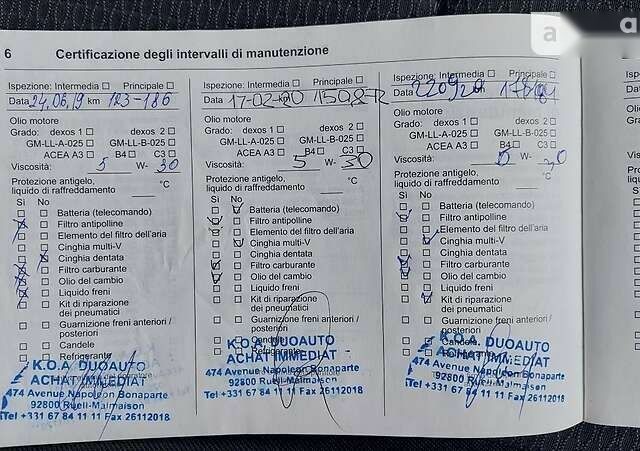 6 Certificazione degli intervalli di manutenzione
Ispezione: Intermedia Principale
Data 24,06,19 km 123-186
Olio motore
Grado: dexos 1 dexos 2
GM-LL-A-025 GM-LL-B-025
ACEA A3 B4 C3
Viscosità: 5 W- 30
Protezione antigelo,
liquido di raffreddamento °C
Sì No
Batteria (telecomando)
Filtro antipolline
Elemento del filtro dell'aria
Cinghia multi-V
Cinghia dentata
Filtro carburante
Olio del cambio
Liquido freni
Kit di riparazione
dei pneumatici
Guarnizione freni anteriori /
posteriori
Candele
Refrigerante
K.O.A. DUOAUTO
ACHAT IMMEDIAT
474 Avenue Napoléon Bonaparte
92800 Rueil-Malmaison
Tel +331 67 84 11 11 Fax 26112018
Ispezione: Intermedia Principale
Data 17-02-20 km
Olio motore
Grado: dexos 1 dexos 2
GM-LL-A-025 GM-LL-B-025
ACEA A3 B4 C3
Viscosità: 5 W- 30
Protezione antigelo,
liquido di raffreddamento °C
Sì No
Batteria (telecomando)
Filtro antipolline
Elemento del filtro dell'aria
Cinghia multi-V
Cinghia dentata
Filtro carburante
Olio del cambio
Liquido freni
Kit di riparazione
dei pneumatici
Guarnizione freni anteriori /
posteriori
Candele
Refrigerante
K.O.A. DUOAUTO
ACHAT IMMEDIAT
474 Avenue Napoléon Bonaparte
92800 Rueil-Malmaison
Tel +331 67 84 11 11 Fax 26112018
Ispezione: Intermedia Principale
Data 220920 km
Olio motore
Grado: dexos 1 dexos 2
GM-LL-A-025 GM-LL-B-025
ACEA A3 B4 C3
Viscosità: W-
Protezione antigelo,
liquido di raffreddamento °C
Sì No
Batteria (telecomando)
Filtro antipolline
Elemento del filtro dell'aria
Cinghia multi-V
Cinghia dentata
Filtro carburante
Olio del cambio
Liquido freni
Kit di riparazione
dei pneumatici
Guarnizione freni anteriori /
posteriori
Candele
K.O.A. DUOAUTO
ACHAT IMMEDIAT
474 Avenue Napoléon Bonaparte
92800 Rueil-Malmaison
Tel +331 67 84 11 11 Fax 26112018
a
a